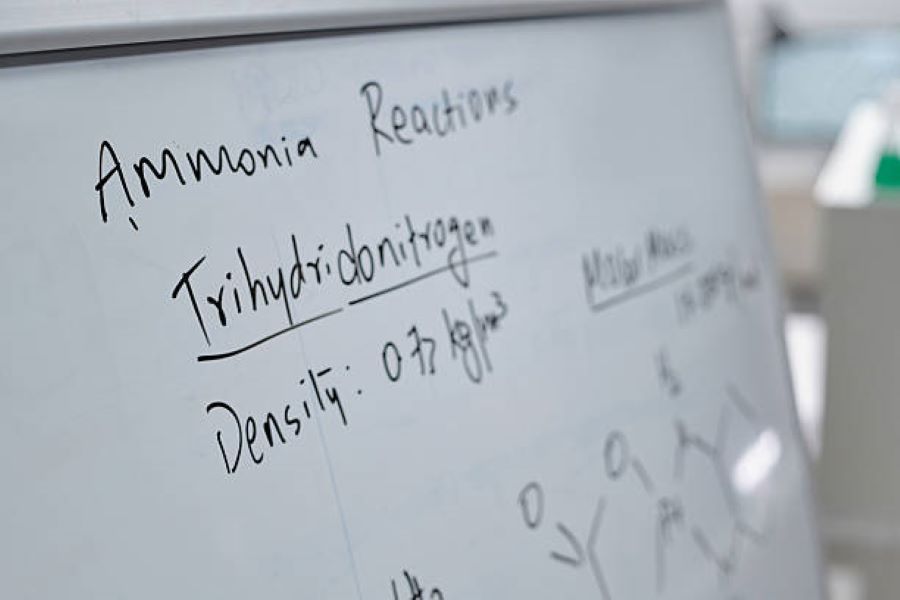 Ammonia Reactions
Trihydridonitrogen
Density: 0.73 kg/m³
Molar Mass
O
O